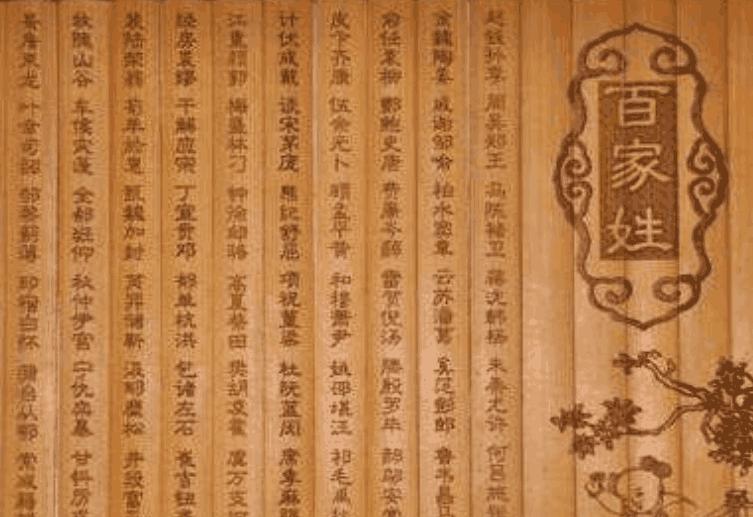 百家姓
赵钱孙李 周吴郑王 冯陈褚卫 蒋沈韩杨 朱秦尤许 何吕施张
金魏陶姜 戚谢邹喻 柏水窦章 云苏潘葛 奚范彭郎 鲁韦昌马
俞任袁柳 酆鲍史唐 费廉岑薛 雷贺倪汤 滕殷罗毕 郝邬安常
皮卞齐康 伍余元卜 顾孟平黄 和穆萧尹 姚邵堪汪 祁毛禹狄
计伏成戴 谈宋茅庞 熊纪舒屈 项祝董梁 杜阮蓝闵 席季麻
江童颜郭 梅盛林刁 钟徐邱骆 高夏蔡田 樊胡凌霍 虞万支柯
经房裘缪 干解应宗 丁宣贲邓 郁单杭洪 包诸左石 崔吉钮
裴陆荣翁 荀羊於惠 甄魏加封 芮羿储靳 汲邴糜松 井段富
牧隗山谷 车侯宓蓬 全郗班仰 秋仲伊宫 宁仇栾暴 甘钭厉
景詹束龙 叶幸司韶 郜黎蓟薄 印宿白怀 蒲邰从鄂 索咸籍